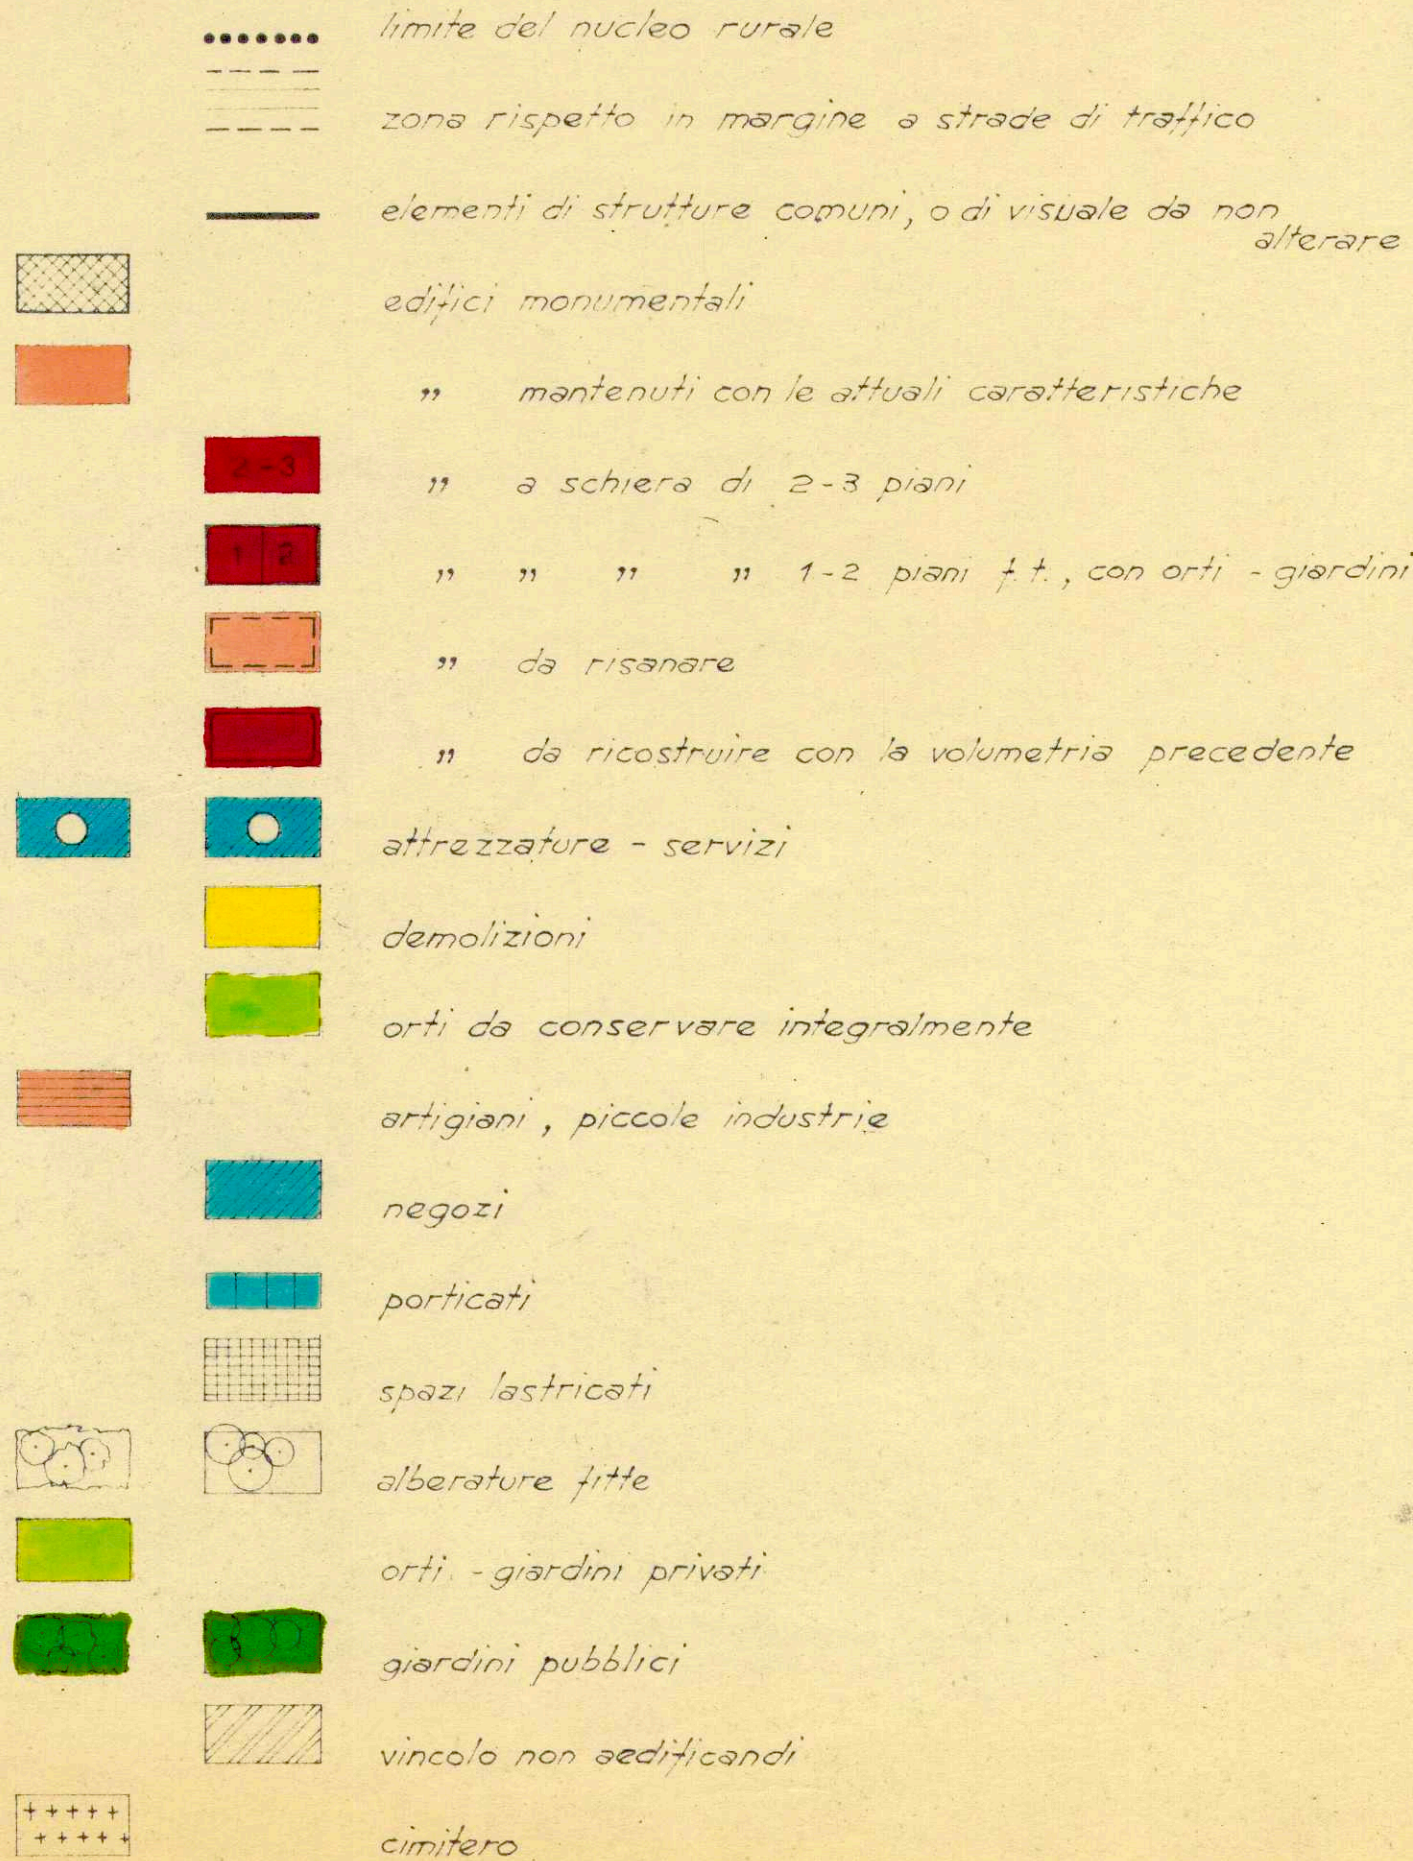 limite del nucleo rurale
zona rispetto in margine a strade di traffico
elementi di strutture comuni, o di visuale da non
alterare
edifici monumentali
" mantenuti con le attuali caratteristiche
2-3 " a schiera di 2-3 piani
1 2 " " " " 1-2 piani f.t., con orti - giardini
" da risanare
" da ricostruire con la volumetria precedente
attrezzature - servizi
demolizioni
orti da conservare integralmente
artigiani, piccole industrie
negozi
porticati
spazi lastricati
alberature fitte
orti - giardini privati
giardini pubblici
vincolo non aedificandi
cimitero